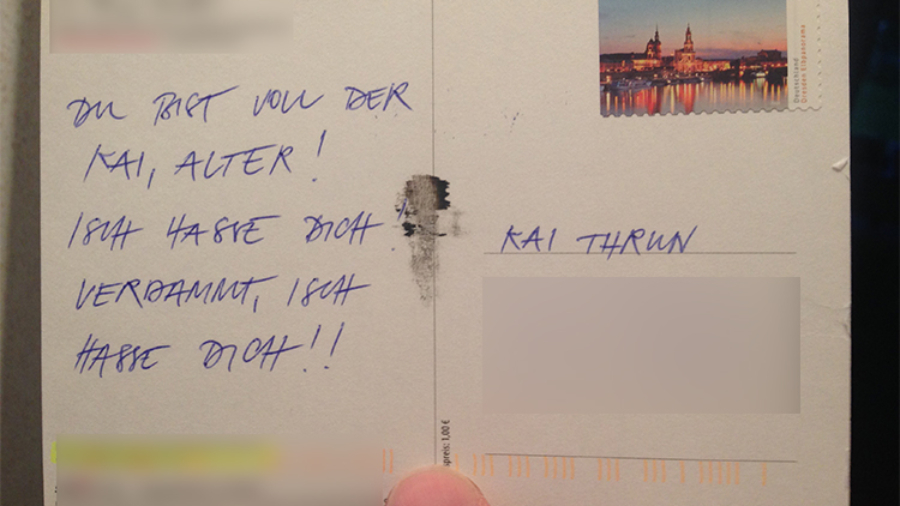 DU BIST VOLL DER
KAI, ALTER!
ISCH HASSE DICH!
VERDAMMT, ISCH
HASSE DICH!!
KAI THRUN
Deutschland
Dresden Elbpanorama
preis: 1,00 €